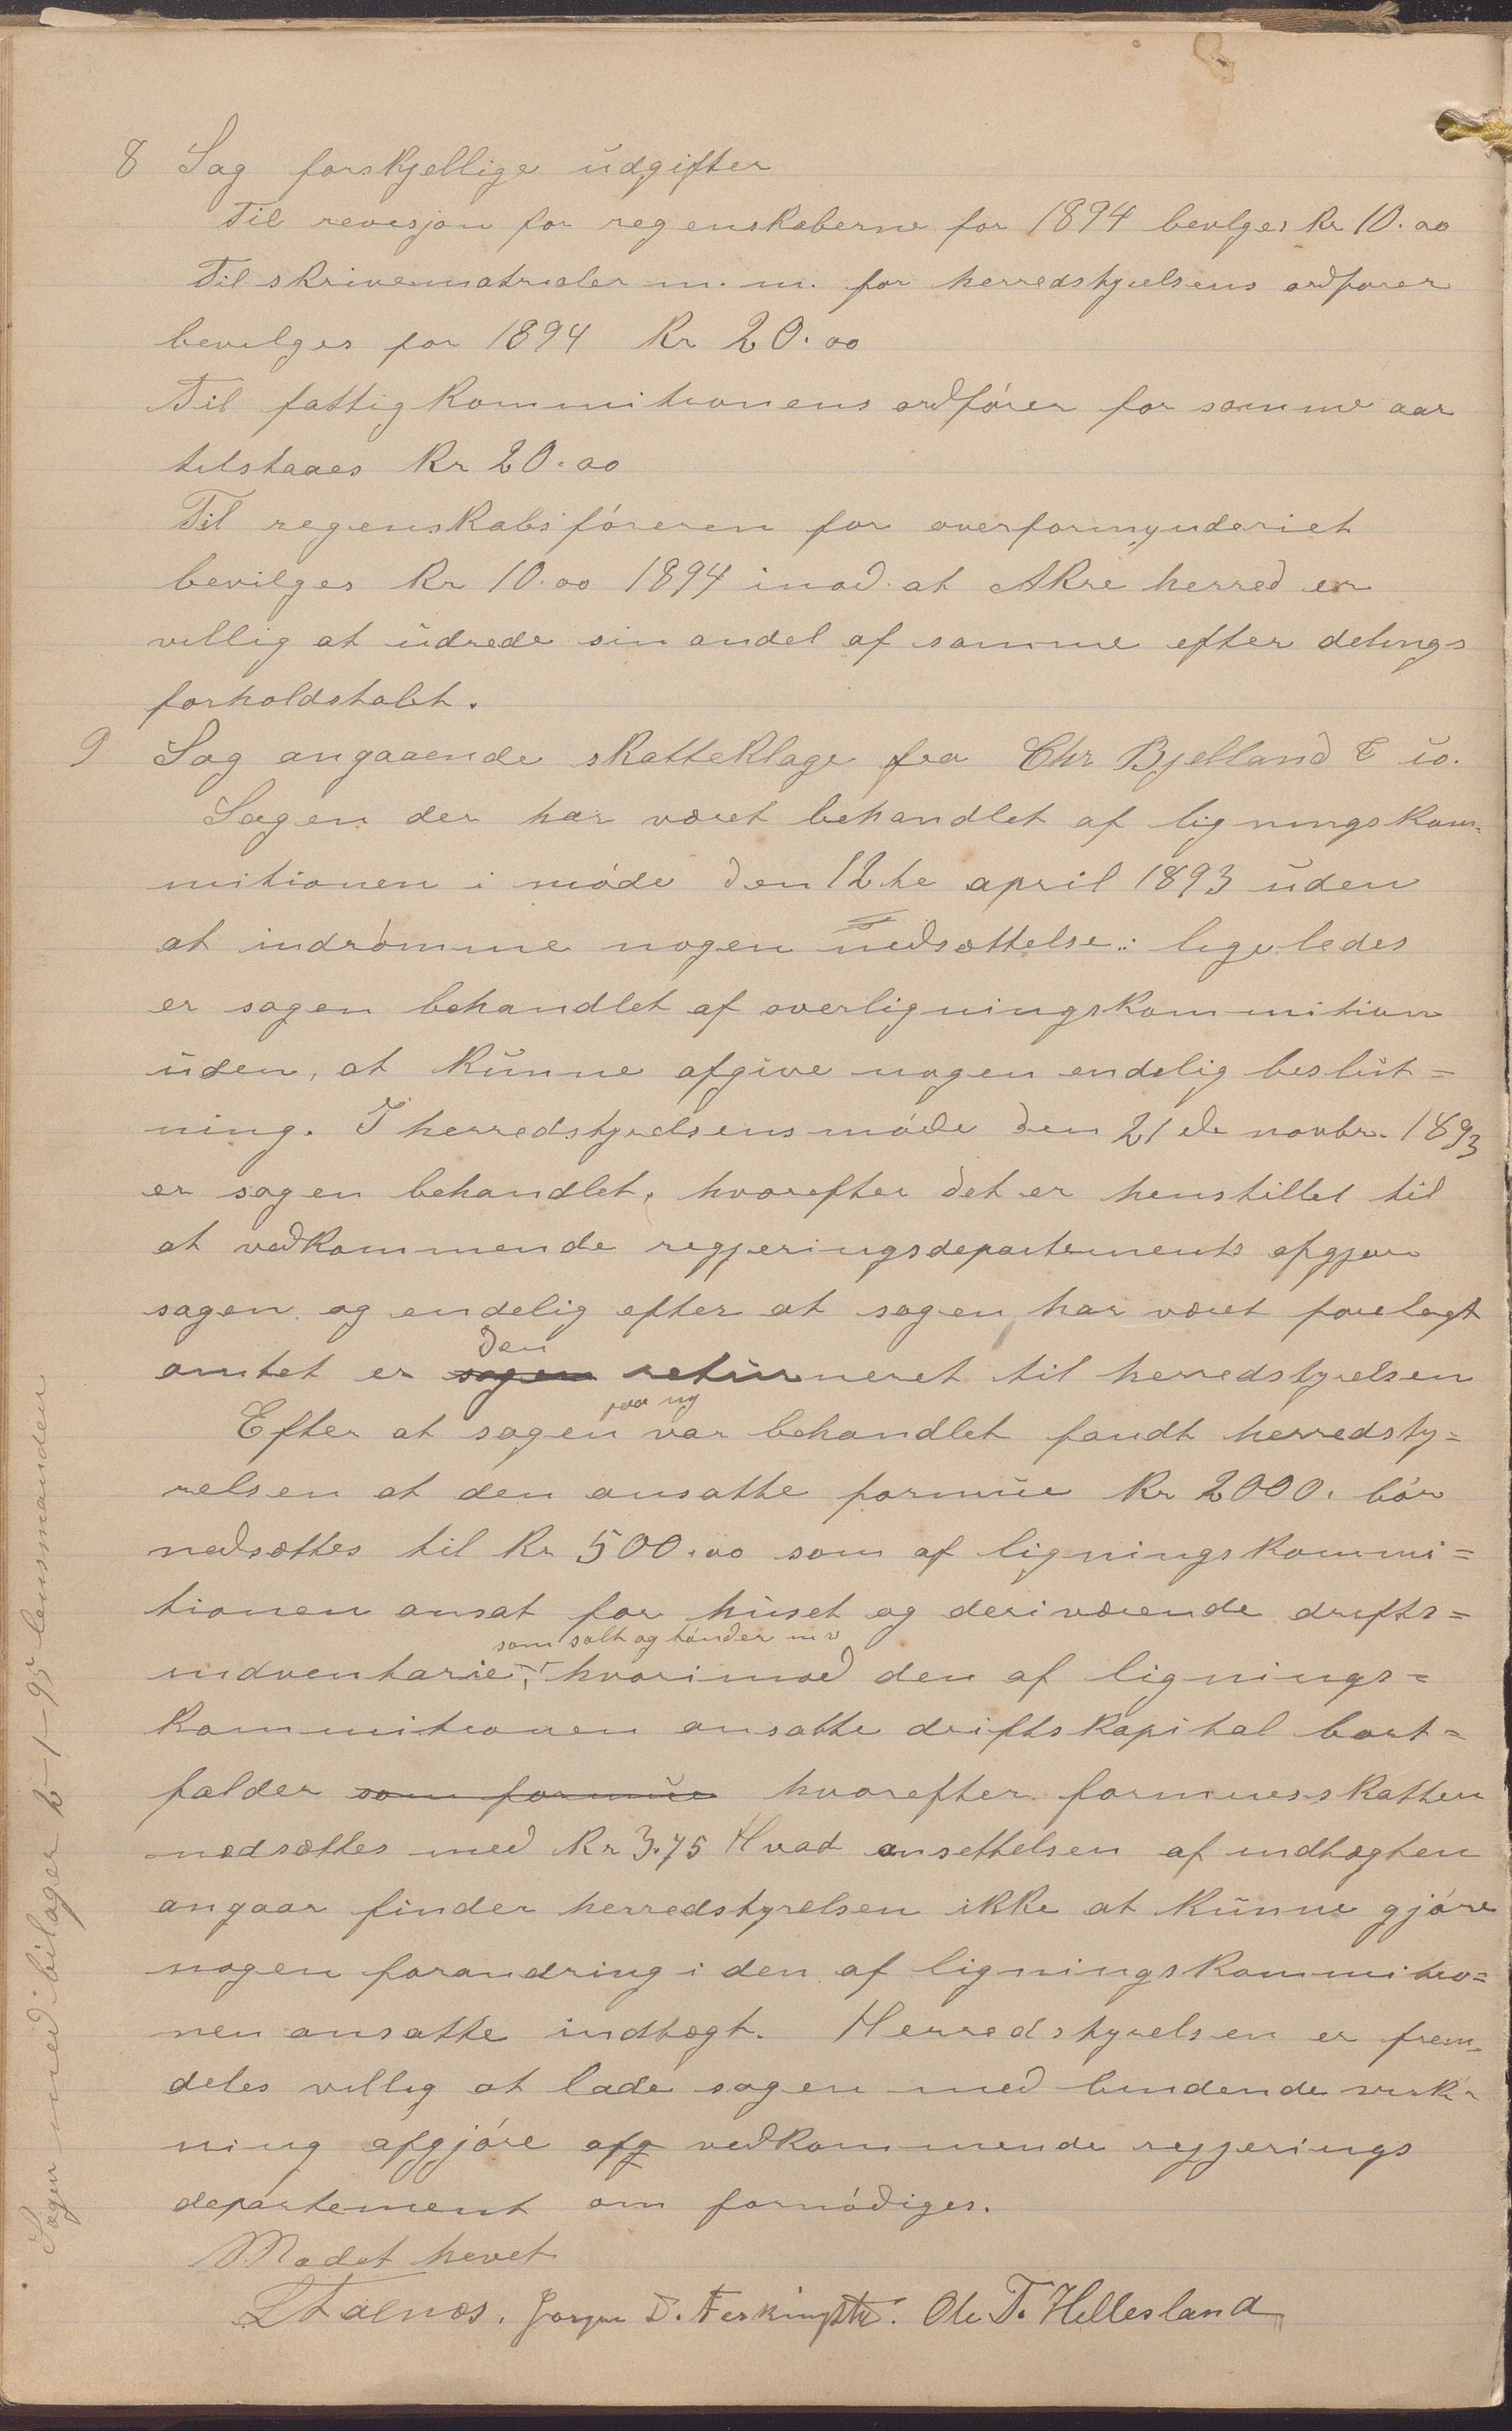 8 Sag forskjellige udgifter
Til revesjon for regenskaberne for 1894 bevlges Kr 10.00
Til skrivematrialer m.m. for herredstyrelsens ordfører
bevilges for 1894 Kr 20.00
Til fattigkommitionens ordfører for samme aar
tilstaaes Kr 20.00
Til regenskabsføreren for overformynderiet
bevilges Kr 10.00 1894 imod at Akre herred er
villig at udrede sin andel af samme efter delings
forholdstalet.
9 Sag angaaende skatteklage fra Chr Bjelland & co.
Sagen der har været behandlet af ligningskom-
mitionen i møde den 12te april 1893 uden
at indrømme nogen nedsættelse.: ligeledes
er sagen behandlet af overligningskommition
uden, at kunne afgive nogen endelig beslut=
ning. I herredstyrelsens møde den 21de novbr. 1893
er sagen behandlet, hvorefter det er henstillet til
at vedkommende regjeringsdepartements afgjør
sagen og endelig efter at sagen har været forelagt
den
amtet er sagen returneret til herredstyrelsen
paa ny
Efter at sagen var behandlet fandt herredsty=
relsen at den ansatte formue Kr 2000. bør
nedsættes til Kr 500.00 som af ligningskommi=
tionen ansat for huset og deriværende drifts=
som salt og tønder m v
indventarie, hvorimod den af lignings=
kommitionen ansatte driftskapital bort=
falder som formue hvorefter formuesskatten
nedsættes med Kr 3.75 Hvad ansettelsen af indtægten
angaar finder herredstyrelsen ikke at kunne gjøre
nogen forandring i den af ligningskommitio=
nen ansatte indtægt. Herredstyrelsen er frem-
deles villig at lade sagen med bindende virk-
ning afgjøre afg vedkommende regjerings
departement om fornødiges.
Mødet hevet
Jørgen D. Ferkingst. Ole T. Hellesland
Sagen med bilager 2-1-95 lensmanden